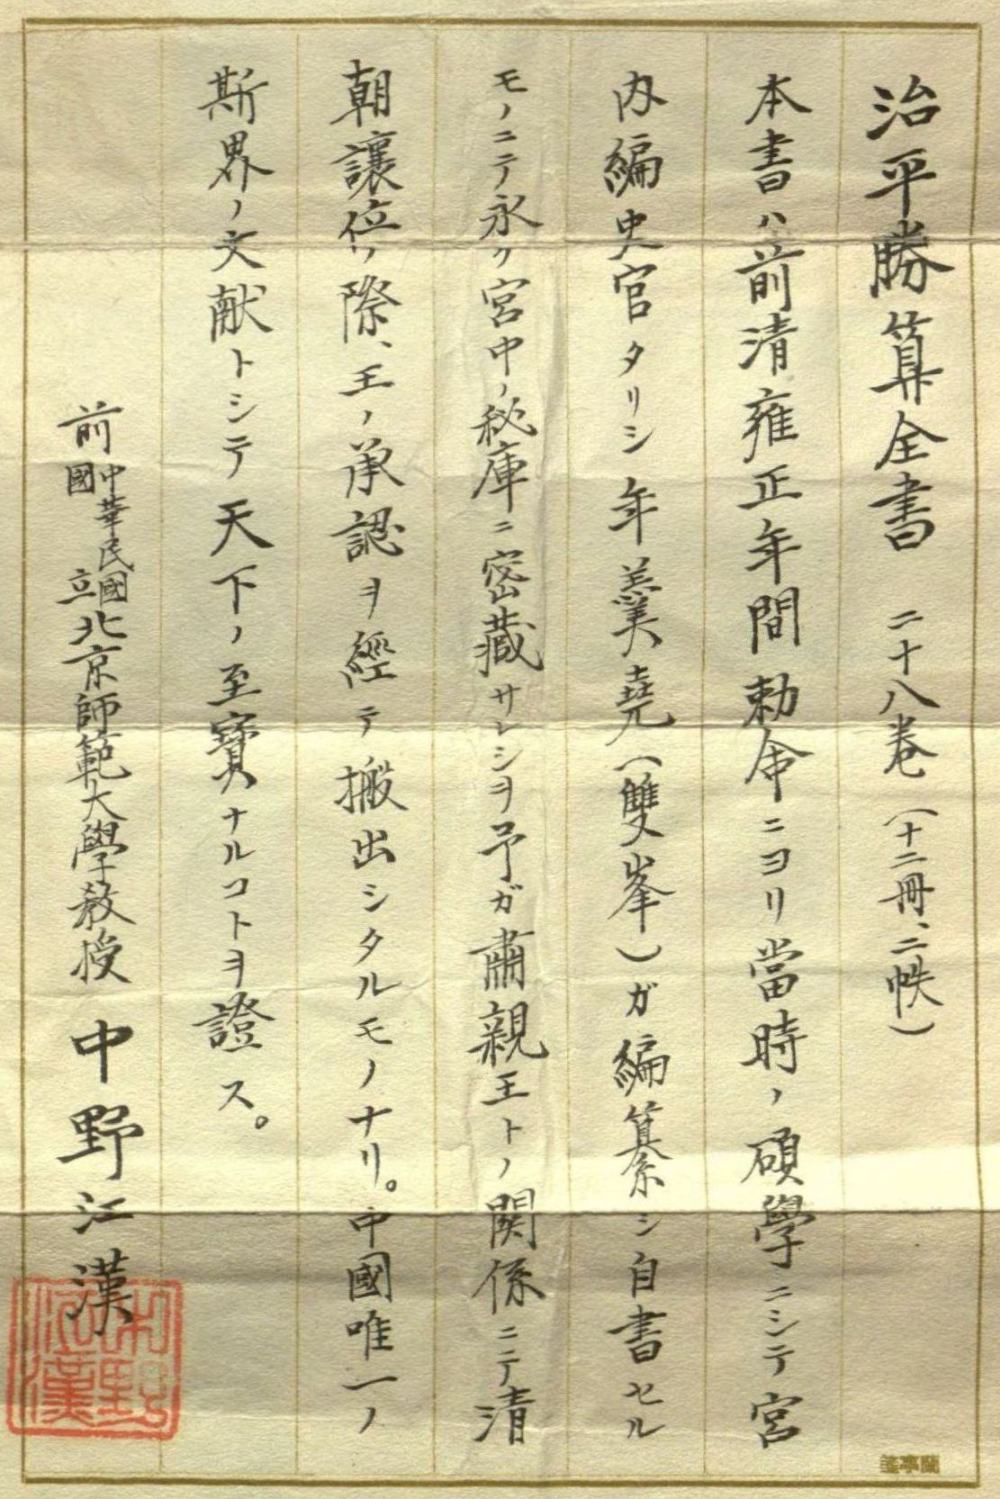 治平勝算全書　二十八巻（十二冊、二帙）
本書ハ前清雍正年間勅命ニヨリ當時ノ碩學ニシテ宮
内編史官タリシ年羹堯（雙峯）ガ編纂シ自書セル
モノニテ永ク宮中ノ秘庫ニ密藏サレシヲ予ガ肅親王トノ関係ニテ清
朝讓位ノ際、王ノ承認ヲ經テ搬出シタルモノナリ。中國唯一ノ
斯界ノ文献トシテ天下ノ至寶ナルコトヲ證ス。
前中華民國國立北京師範大學教授　中野江漢
中野江漢
蘭亭箋